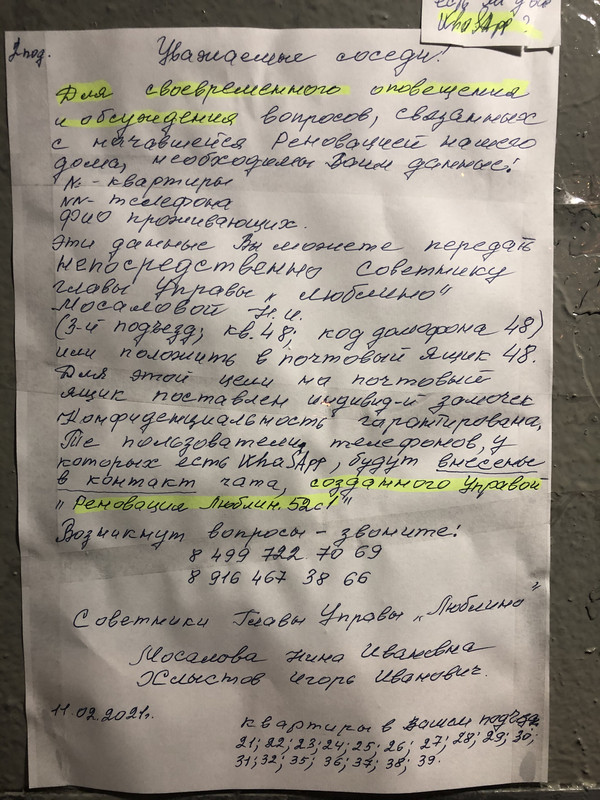 есть ли у вас
WhaSApp?
2 под.
Уважаемые соседи!
Для своевременного оповещения
и обсуждения вопросов, связанных
с начавшейся Реновацией нашего
дома, необходимы Ваши данные!
№ - квартиры
NN - телефона
ФИО проживающих.
Эти данные Вы можете передать
непосредственно Советнику
главы Управы „Люблино"
Мосаловой Н.И.
(3-й подъезд; кв. 48; код домофона 48)
или положить в почтовый ящик 48.
Для этой цели на почтовый
ящик поставлен индивид-й замочек
Конфиденциальность гарантирована.
Те пользователи, телефонов, у
которых есть WhaSApp, будут внесены
в контакт чата, созданного Управой
„Реновация Люблин. 52с1"
Возникнут вопросы - звоните!
8 499 722 70 69
8 916 467 38 66
Советники Главы Управы „Люблино"
Мосалова Нина Ивановна
Хлыстов Игорь Иванович.
11.02.2021г.
квартиры в Вашем подъезде
21; 22; 23; 24; 25; 26; 27; 28; 29; 30;
31; 32; 35; 36; 37; 38; 39.